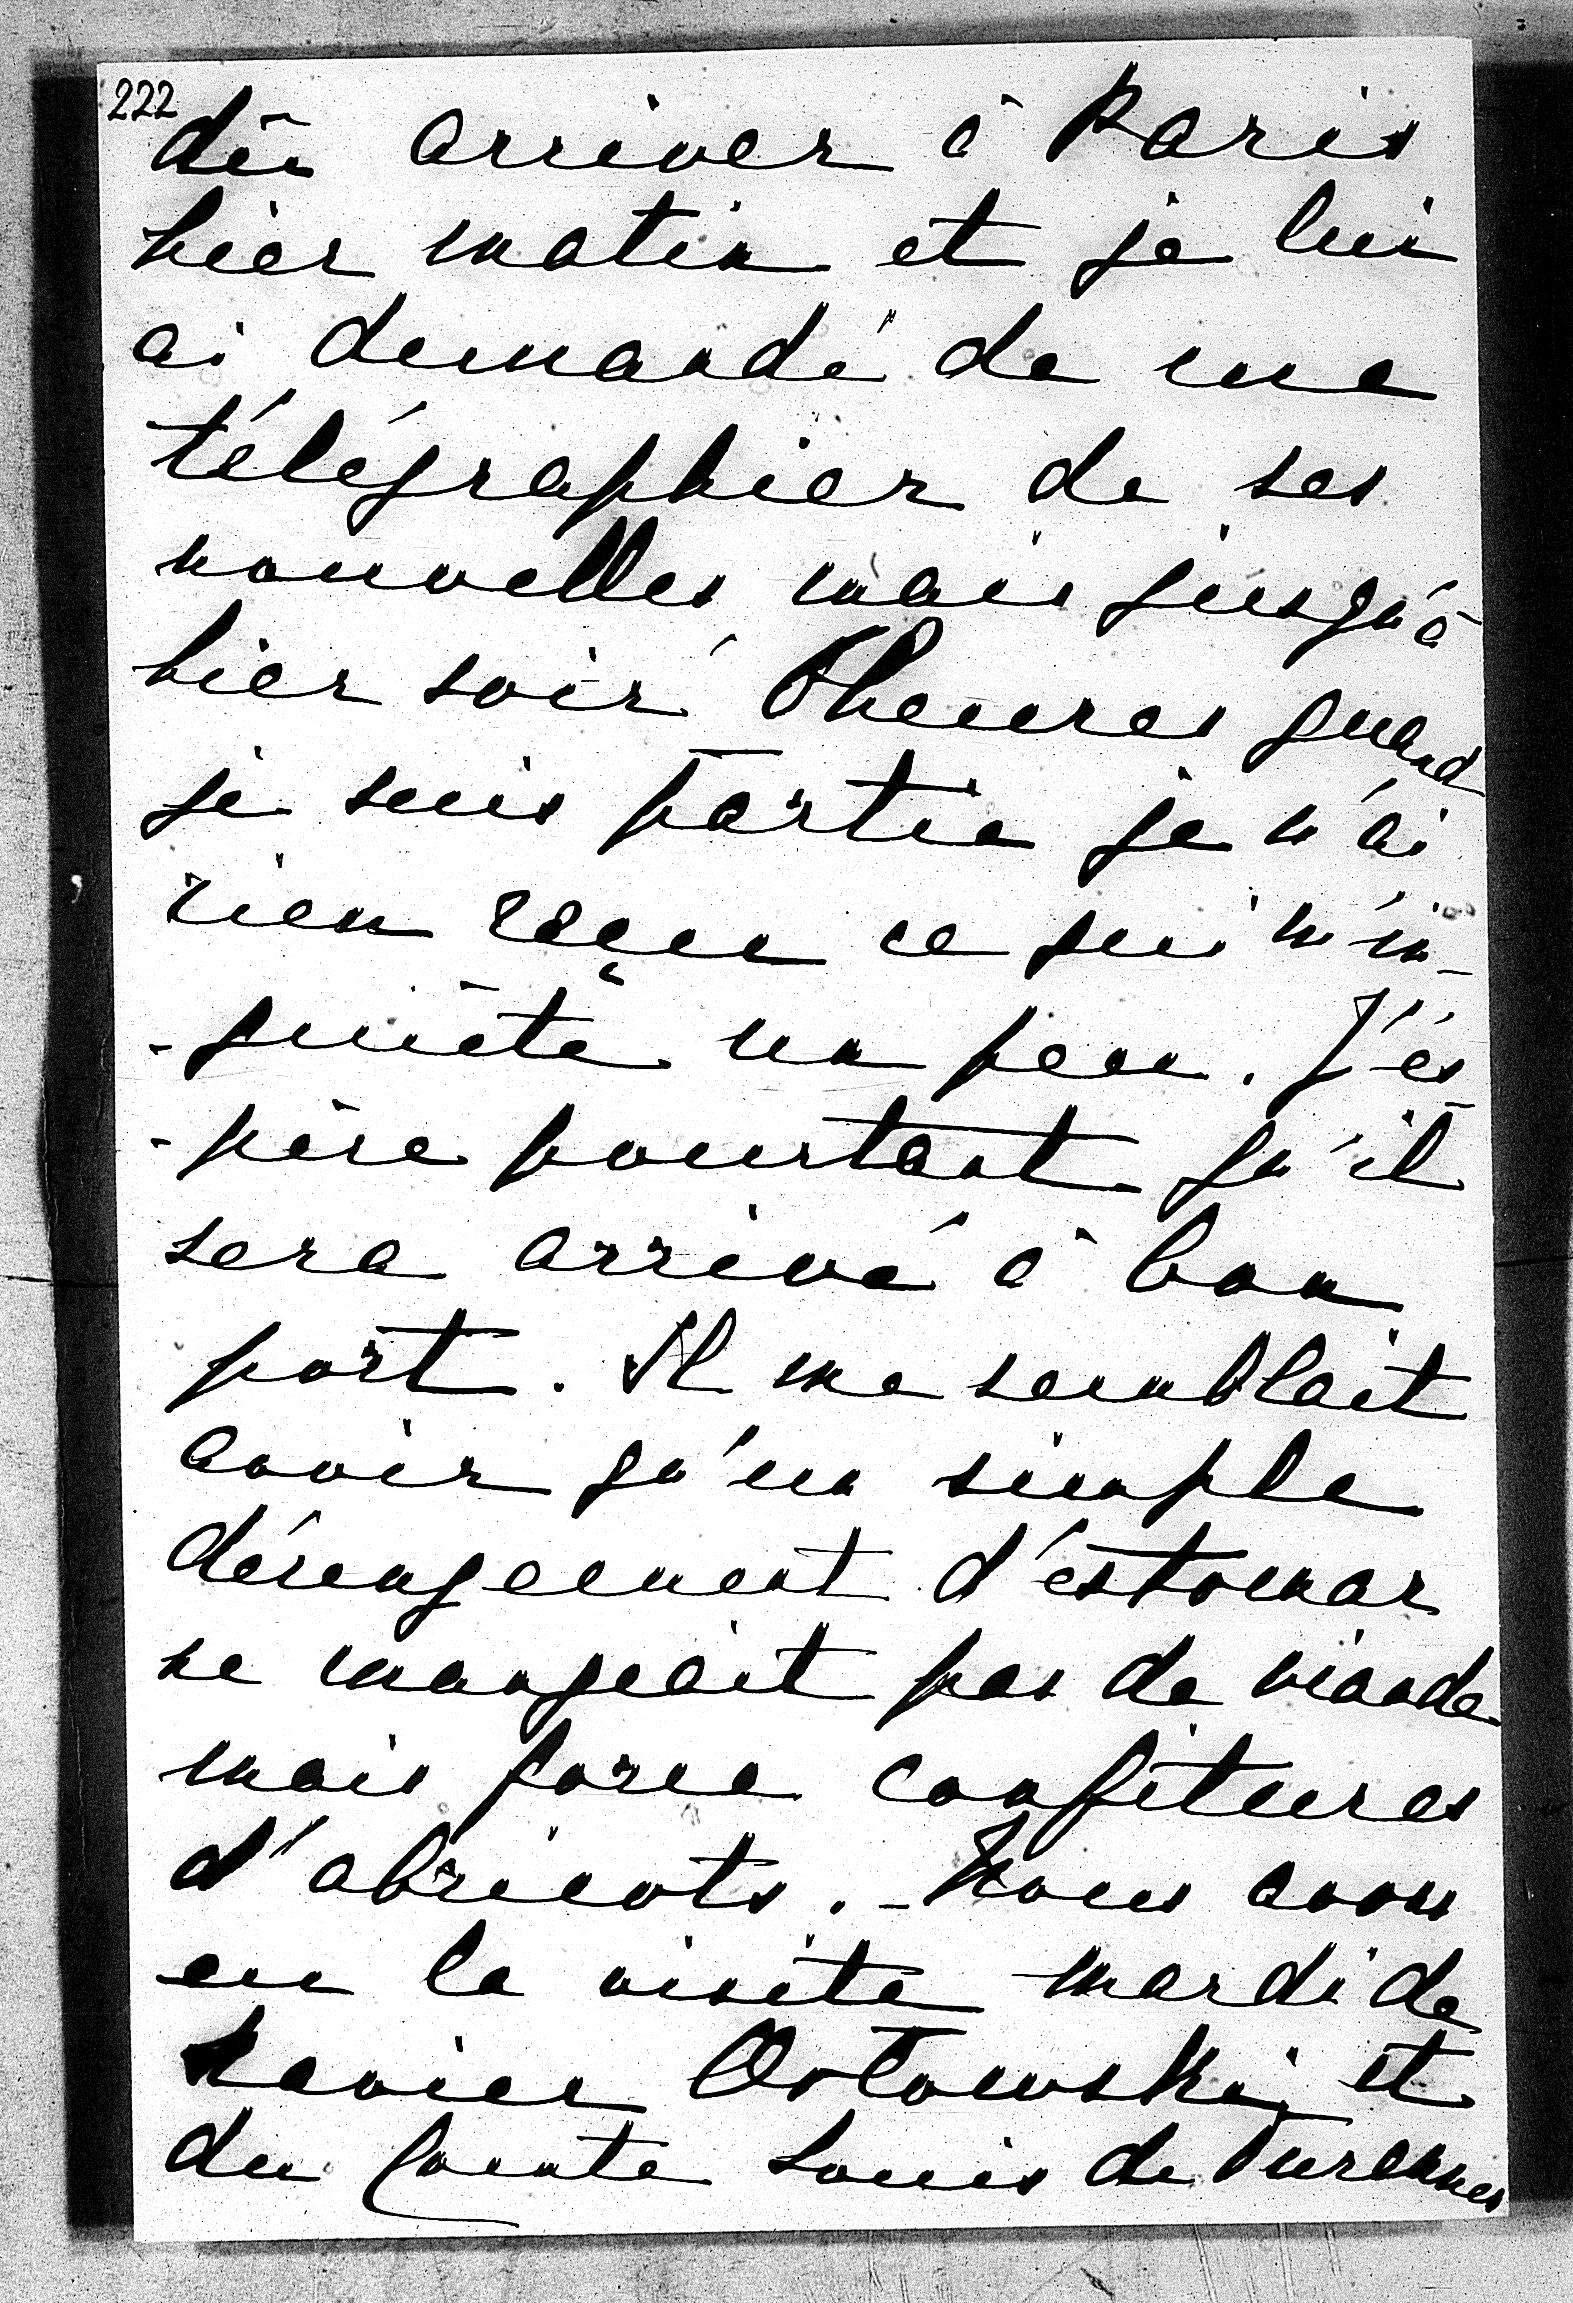 222
dû arriver à Paris
hier matin et je lui
ai demandé de me
télégraphier de ses
nouvelles mais jusqu'à
hier soir 6 heures quand
je suis partie je n'ai
rien reçu ce qui m'in-
-quiète un peu. J'es-
-père pourtant qu'il
sera arrivé à bon
port. Il me semblait
avoir qu'un simple
dérangement d'estomac
ne mangeait pas de viande
mais force confitures
d'abricots. - Nous avons
eu la visite mardi de
Xavier Orłowski et
du Comte Louis de Turennes